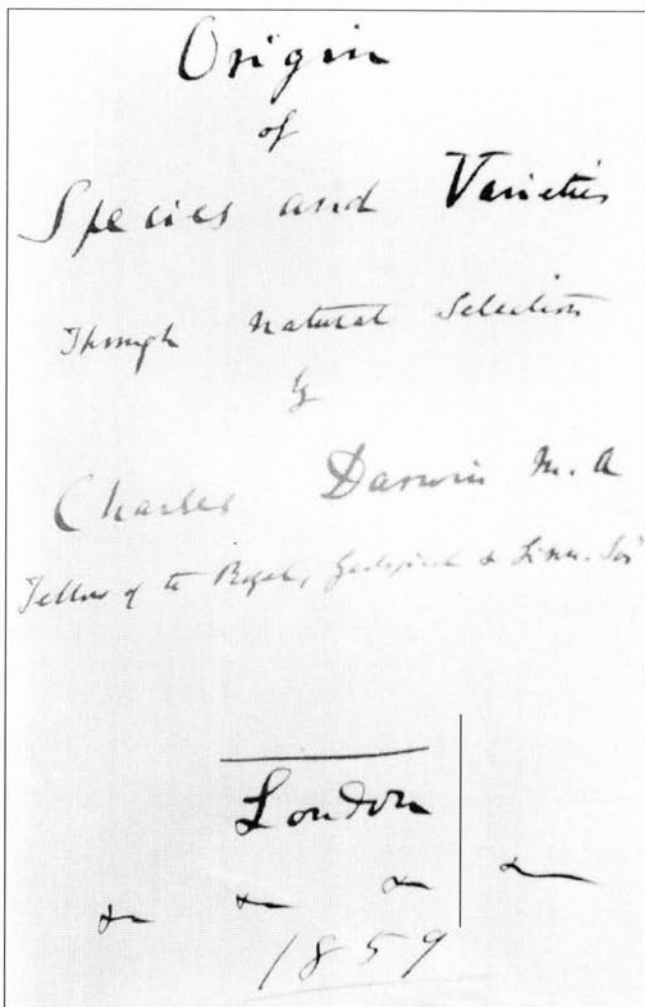 Origin
of
Species and Varieties
Through natural Selection
by
Charles Darwin M. A
Fellow of the Royal, Geological & Linn. Soc
London
&c &c &c &c
1859